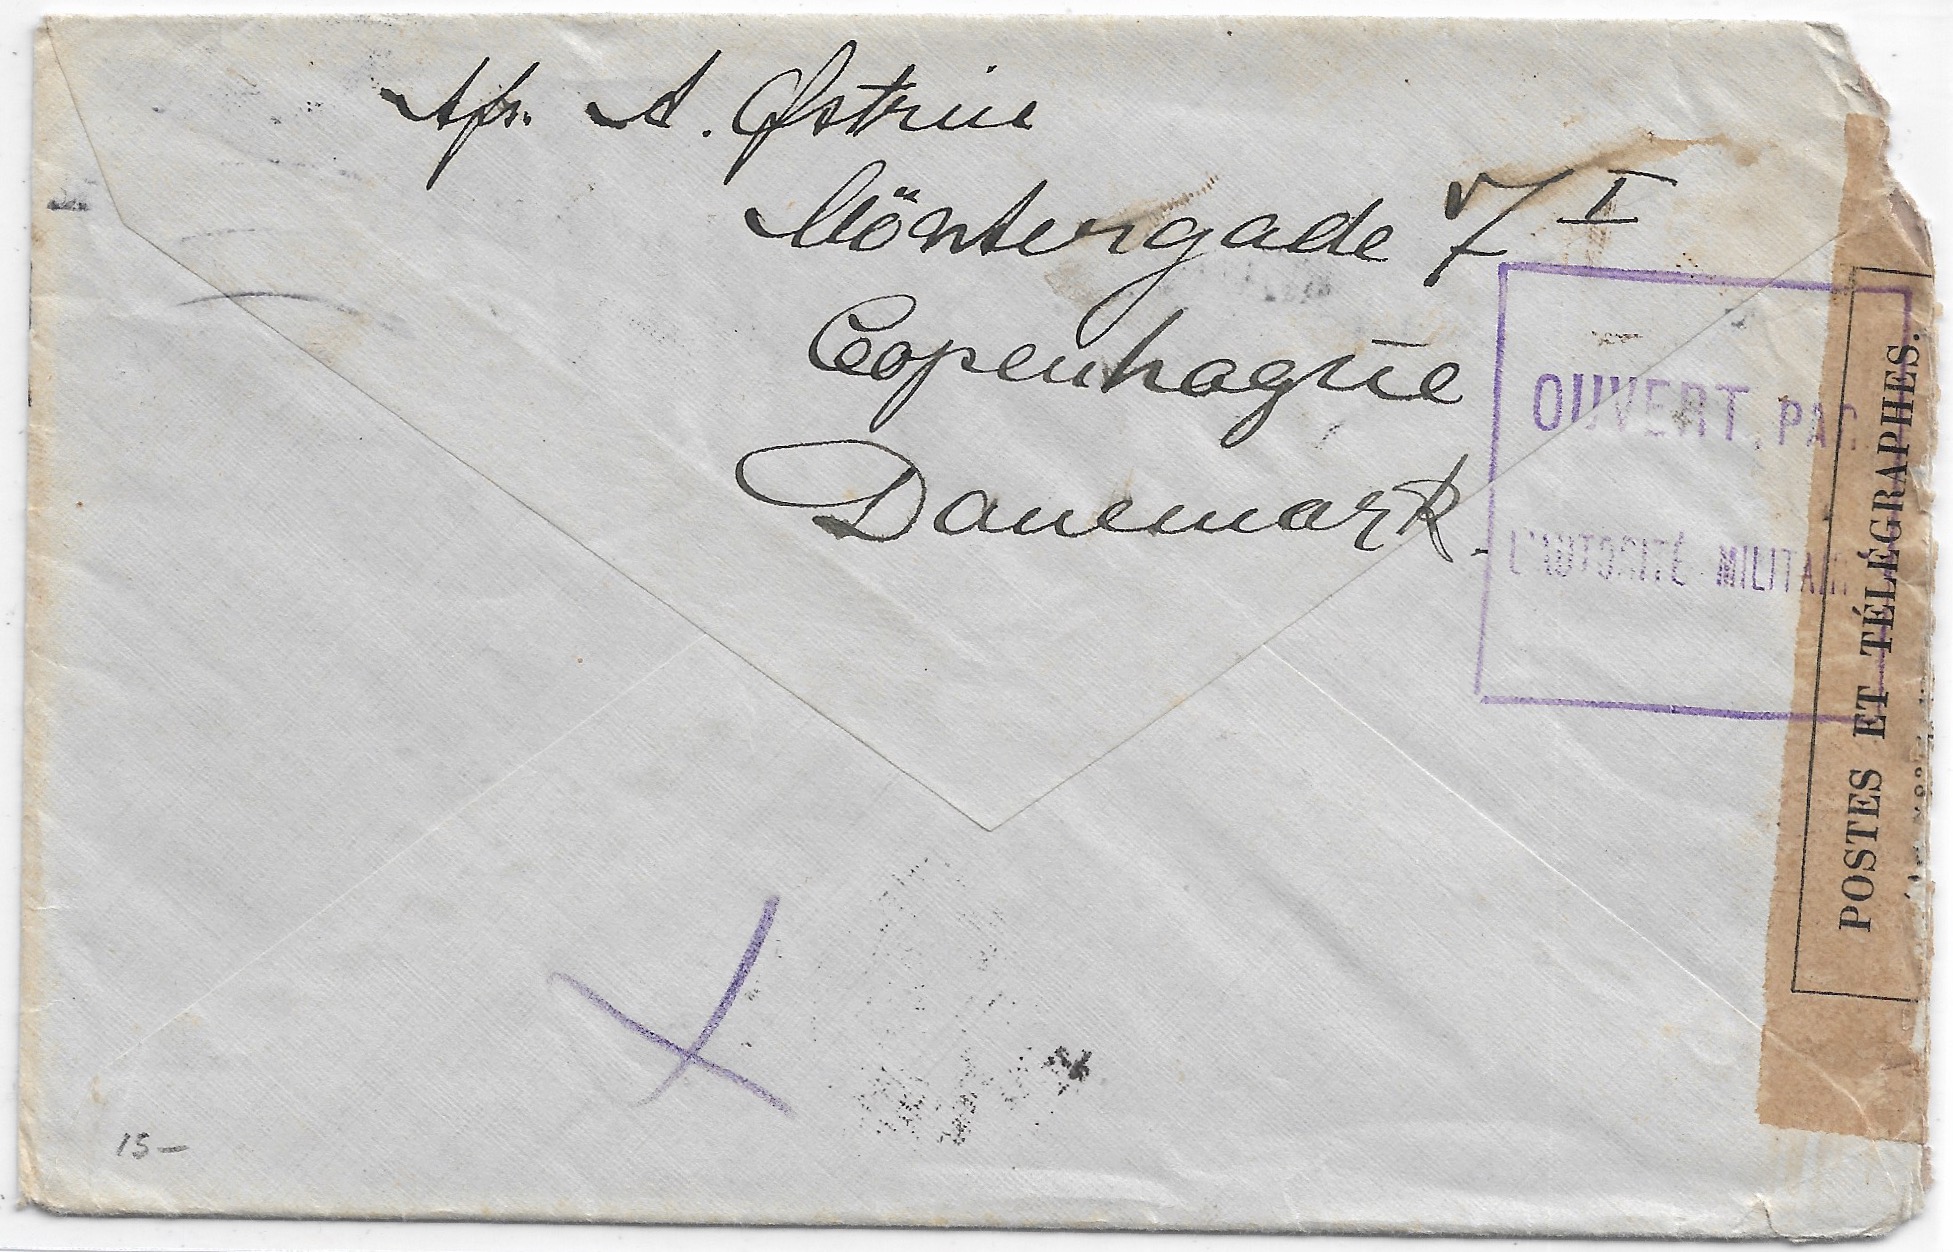 Afs. A. Østrin
Möntergade 7 I
Copenhague
Danemark.
OUVERT PAR
L'AUTORITÉ MILITAIR
POSTES ET TÉLÉGRAPHES.
15-